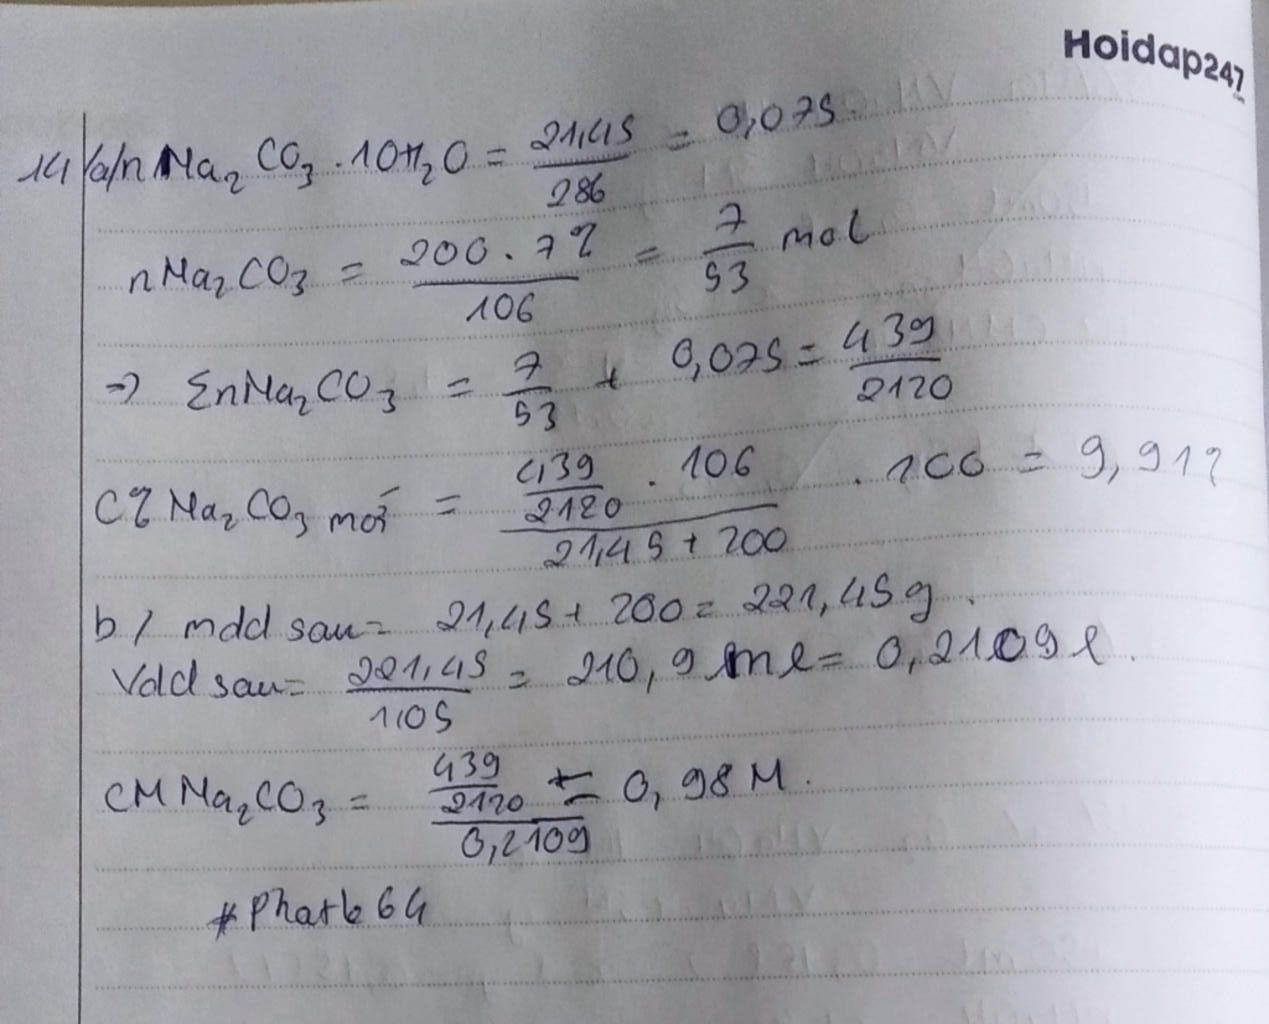 Hoidap247
.com
14/a/ n Na₂CO₃.10H₂O = 21,45/286 = 0,075.
nNa₂CO₃ = 200.7%/106 = 7/53 mol
=> ΣnNa₂CO₃ = 7/53 + 0,075 = 439/2120
C% Na₂CO₃ mới = (439/2120 . 106)/(21,45 + 200) . 100 = 9,91%
b/ mdd sau = 21,45 + 200 = 221,45g.
Vdd sau = 221,45/1,05 = 210,9 ml = 0,2109 l.
CM Na₂CO₃ = (439/2120)/0,2109 = 0,98M.
#Phatk64